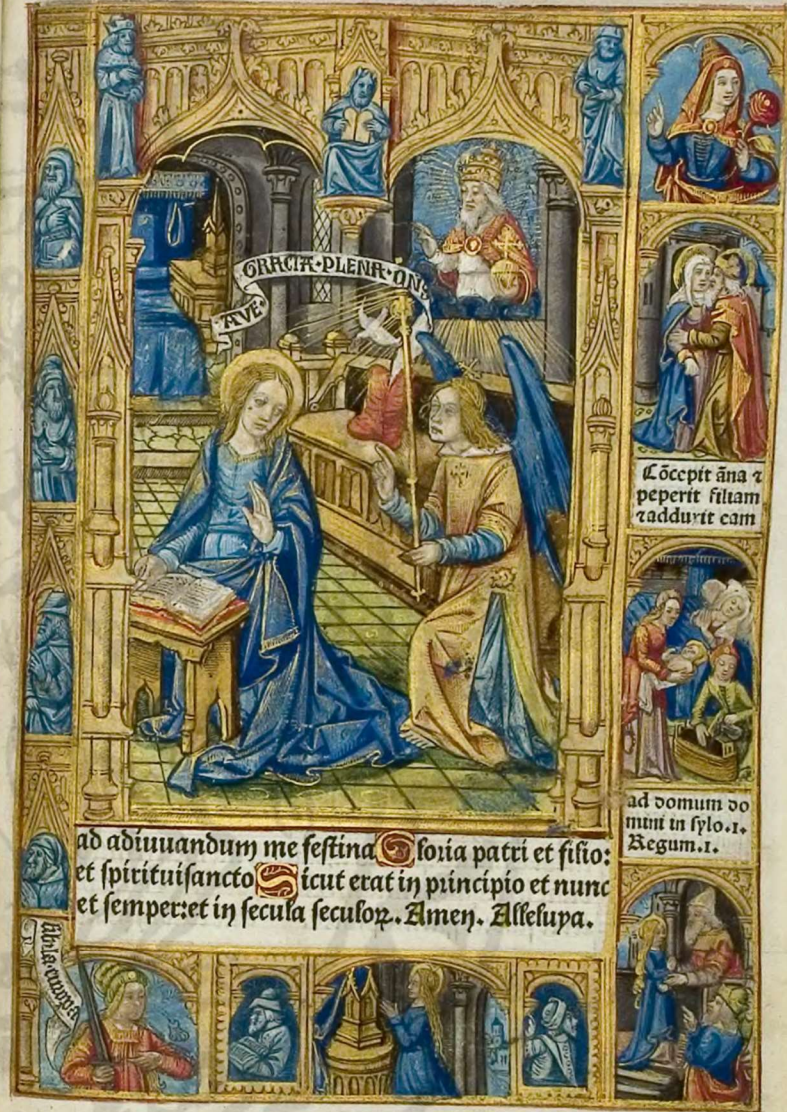 AVE
GRACIA·PLENA·DNS
Cōcepit āna ⁊
peperit filiam
⁊adduxit eam
ad domum do
mini in sylo.1.
Regum.1.
ad adiuuandum me festina Gloria patri et filio:
et spirituisancto Sicut erat in principio et nunc
et semper:et in secula seculoꝝ. Amen. Alleluya.
sibila·europa